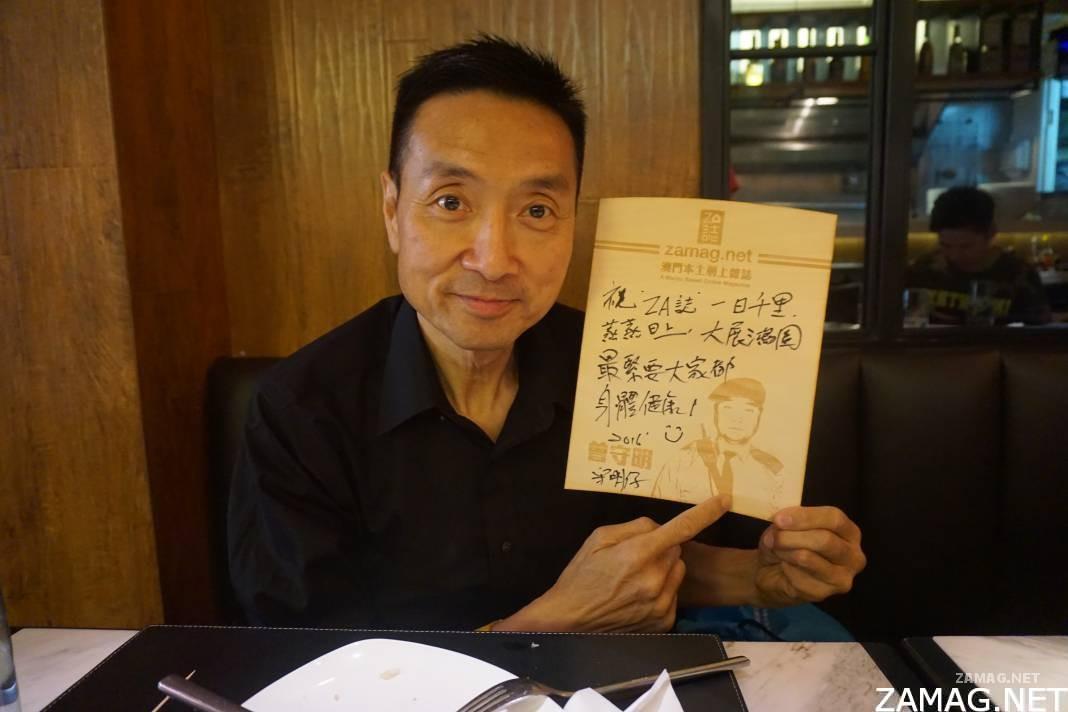 ZA誌
zamag.net
澳門本土網上雜誌
A Macau Based Online Magazine
祝"ZA誌"一日千里,
蒸蒸日上,大展鴻图
最緊要大家都
身體健康!
2016
曾守明
明仔
ZAMAG.NET
ZAMAG.NET